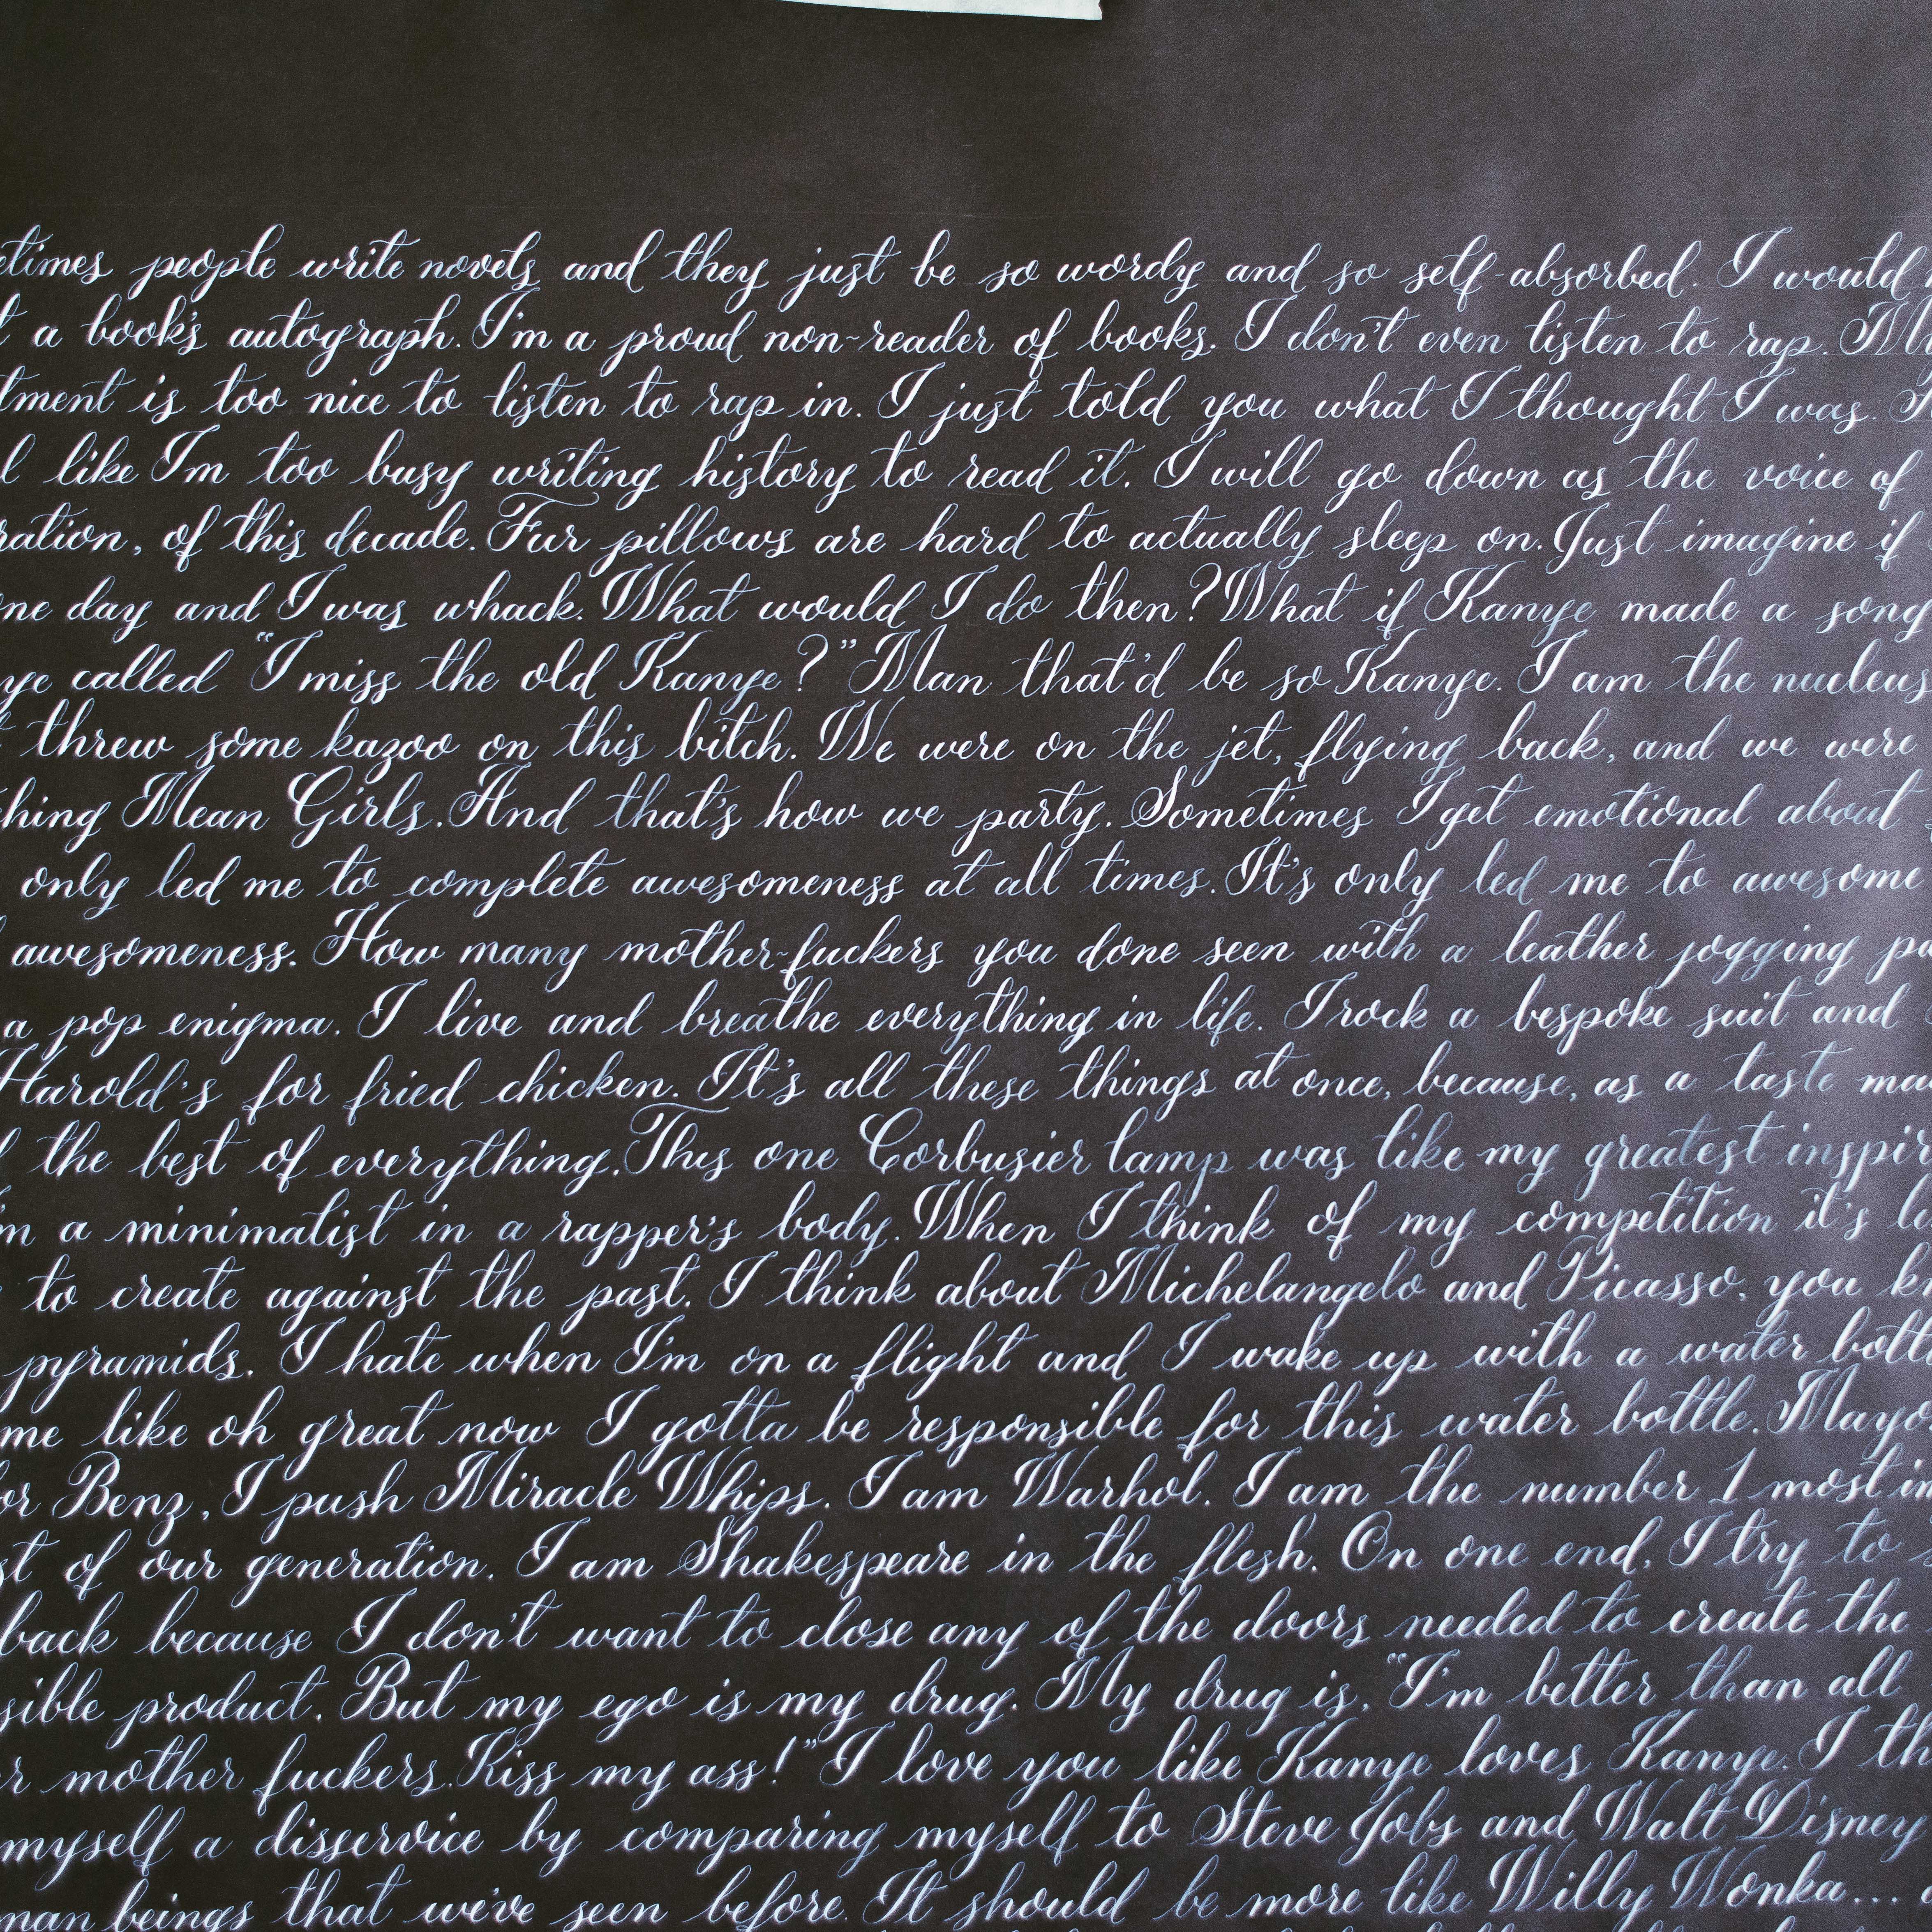 etimes people write novels and they just be so wordy and so self-absorbed. I would
a book's autograph. I'm a proud non-reader of books. I don't even listen to rap. My
tment is too nice to listen to rap in. I just told you what I thought I was.
l like I'm too busy writing history to read it. I will go down as the voice of
ration, of this decade. Fur pillows are hard to actually sleep on. Just imagine if
one day and I was whack. What would I do then? What if Kanye made a song
ye called "I miss the old Kanye?" Man that'd be so Kanye. I am the nucleus
threw some kazoo on this bitch. We were on the jet, flying back, and we were
hing Mean Girls. And that's how we party. Sometimes I get emotional about
only led me to complete awesomeness at all times. It's only led me to awesome
awesomeness. How many mother-fuckers you done seen with a leather jogging pa
a pop enigma. I live and breathe everything in life. I rock a bespoke suit and
Harold's for fried chicken. It's all these things at once, because, as a taste ma
the best of everything. This one Corbusier lamp was like my greatest inspir
'm a minimalist in a rapper's body. When I think of my competition it's l
to create against the past. I think about Michelangelo and Picasso, you k
pyramids. I hate when I'm on a flight and I wake up with a water bott
me like oh great now I gotta be responsible for this water bottle. Mayo
or Benz, I push Miracle Whips. I am Warhol. I am the number 1 most im
st of our generation. I am Shakespeare in the flesh. On one end, I try to
back because I don't want to close any of the doors needed to create the
sible product. But my ego is my drug. My drug is, "I'm better than all
r mother fuckers. Kiss my ass!" I love you like Kanye loves Kanye. I th
myself a disservice by comparing myself to Steve Jobs and Walt Disney
man beings that we've seen before. It should be more like Willy Wonka...